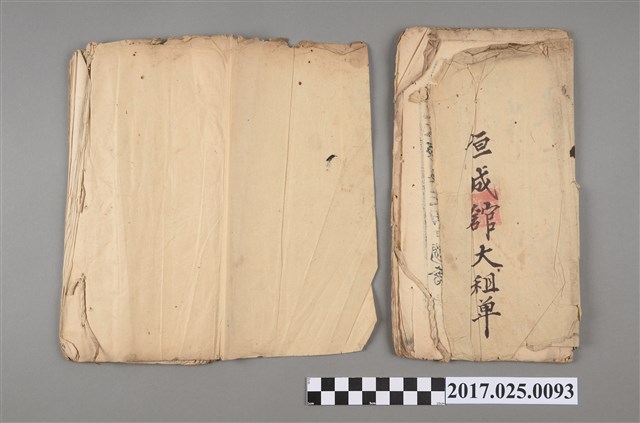 垣成館大租单
2017.025.0093